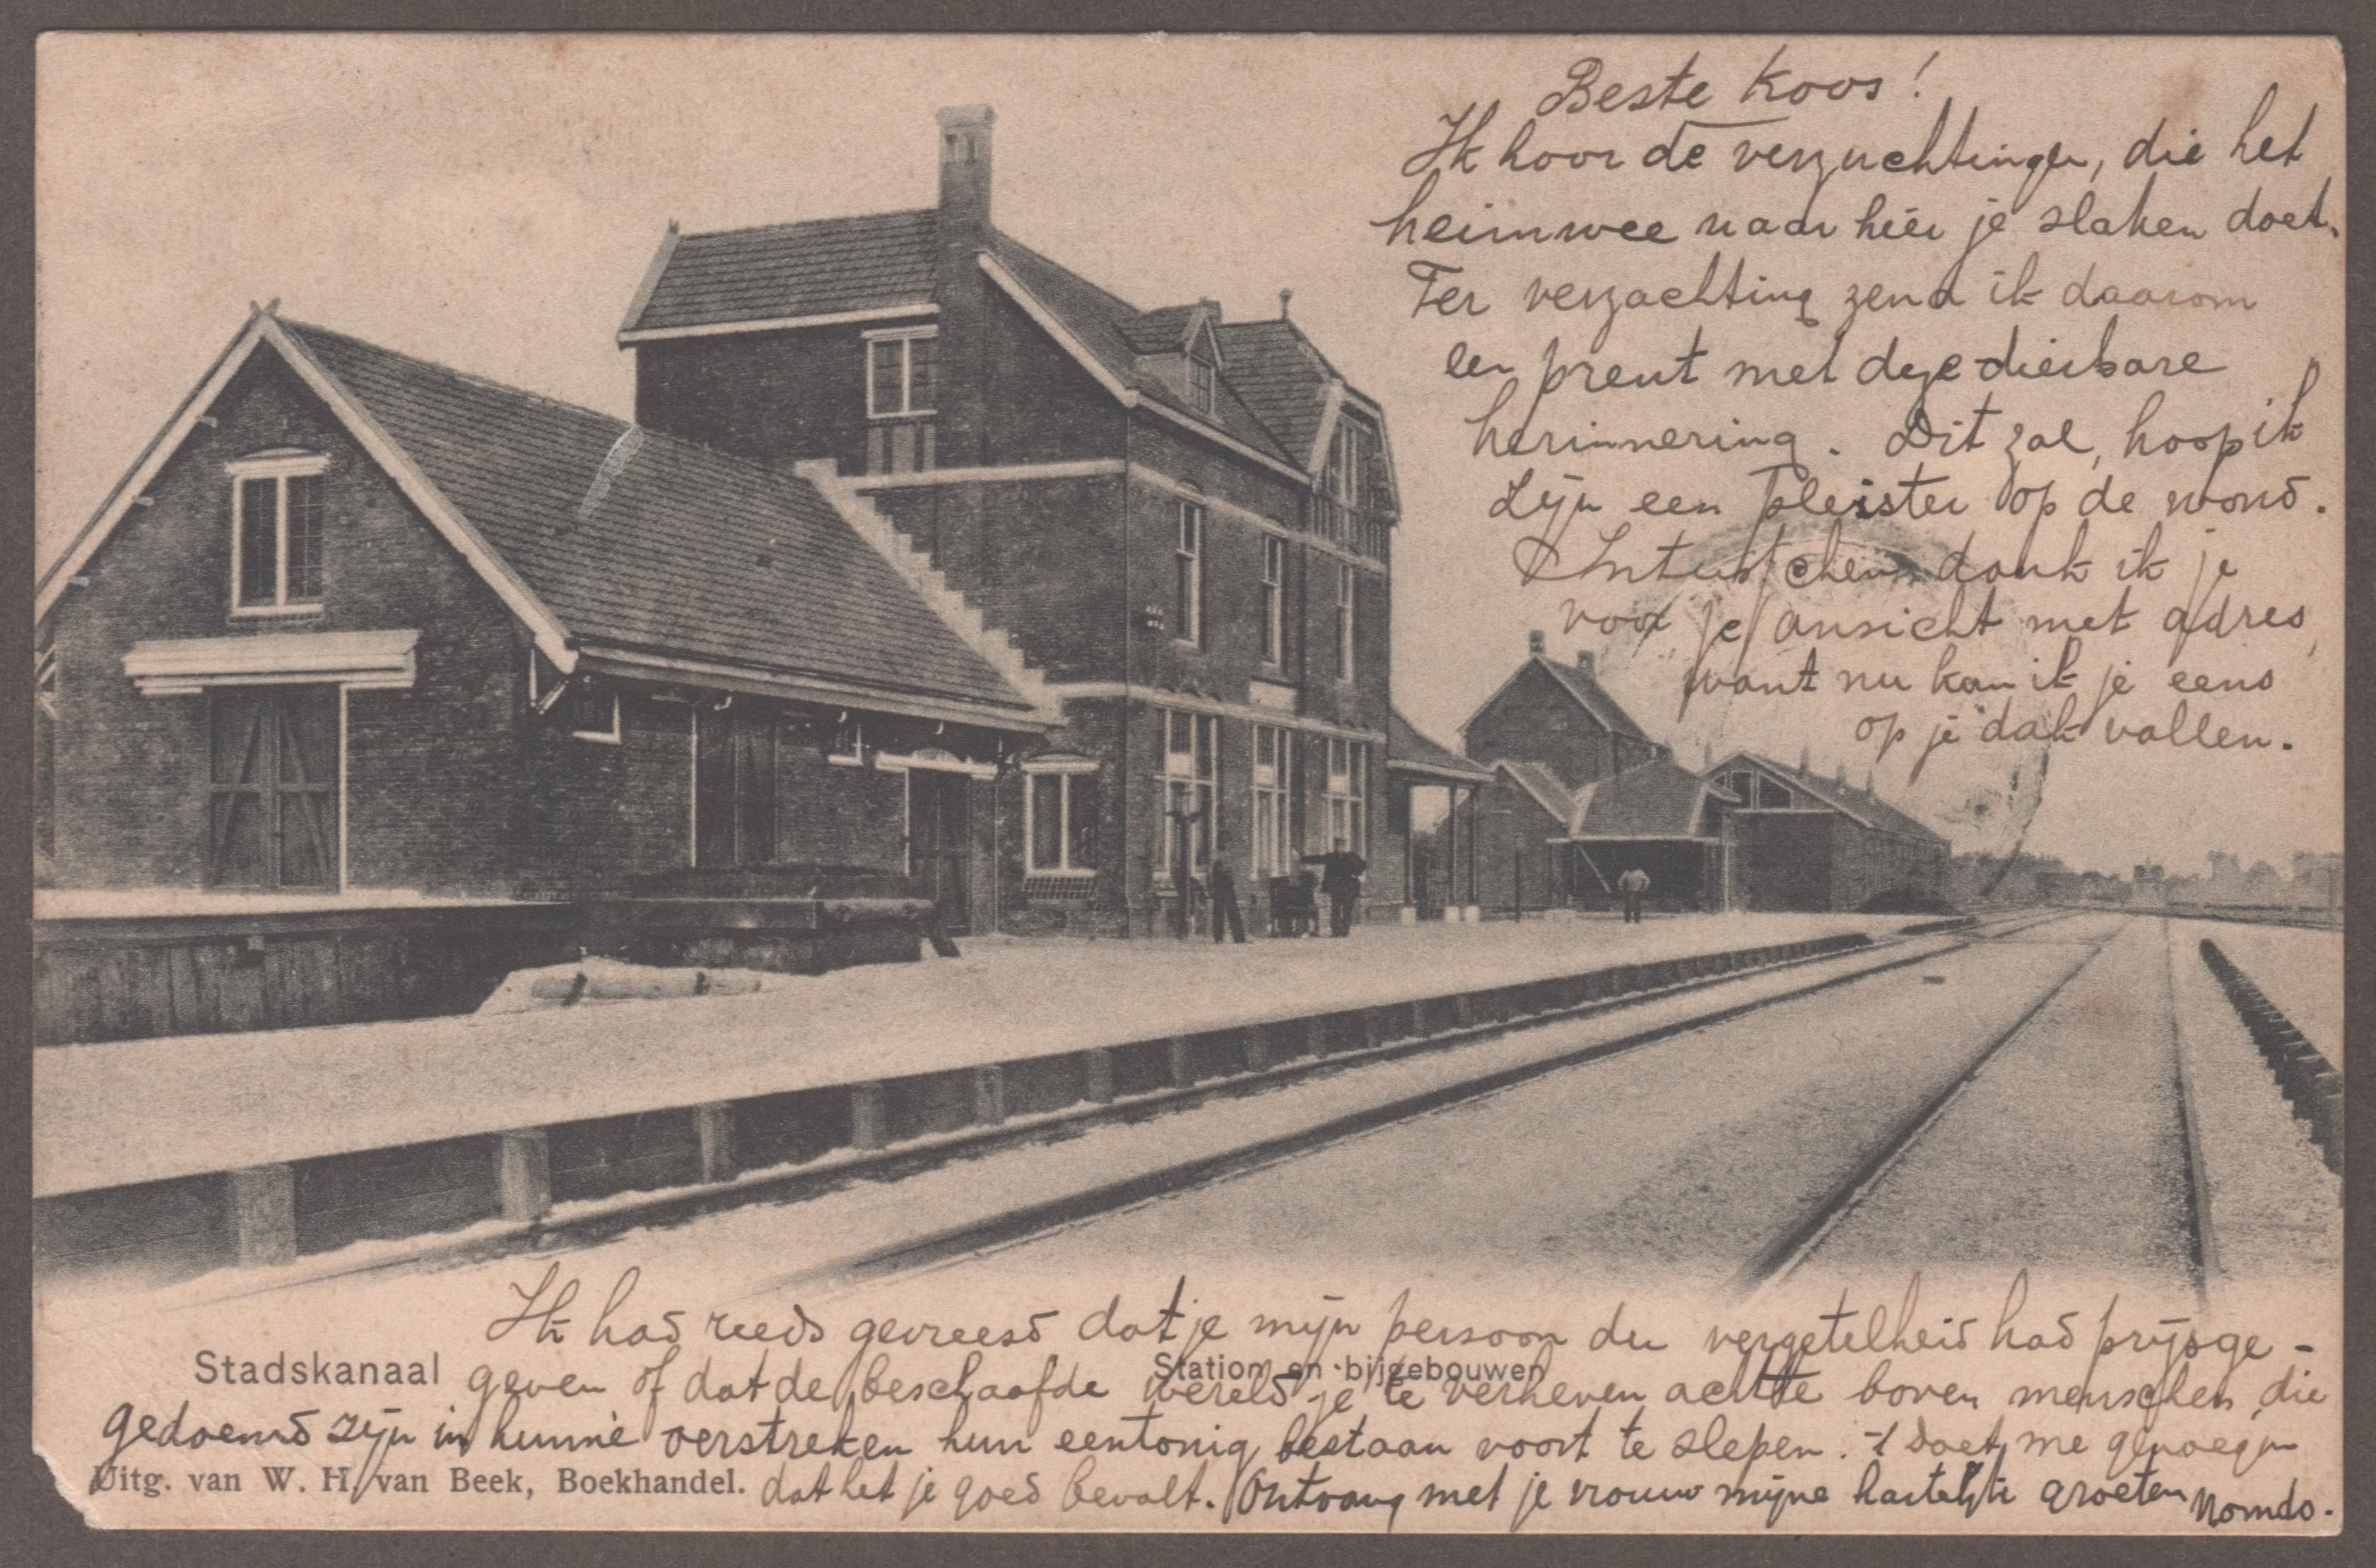 Beste Koos!
Ik hoor de verzuchtingen, die het
heimwee naar hier je slaken doet.
Ter verzachting zend ik daarom
een prent met deze dierbare
herinnering. Dit zal, hoop ik
zijn een pleister op de wond.
Intusschen dank ik je
voor je ansicht met adres,
want nu kan ik je eens
op je dak vallen.
Ik had reeds gevreesd dat je mijn persoon der vergetelheid had prijsge-
Stadskanaal
Station en bijgebouwen
geven of dat de beschaafde wereld je te verheven achtte boven menschen, die
gedoemd zijn in hunne oerstreken hun eentonig bestaan voort te slepen. 't doet me genoegen
Uitg. van W. H. van Beek, Boekhandel.
dat het je goed bevalt. Ontvang met je vrouw mijne hartelijke groeten Nomdo.